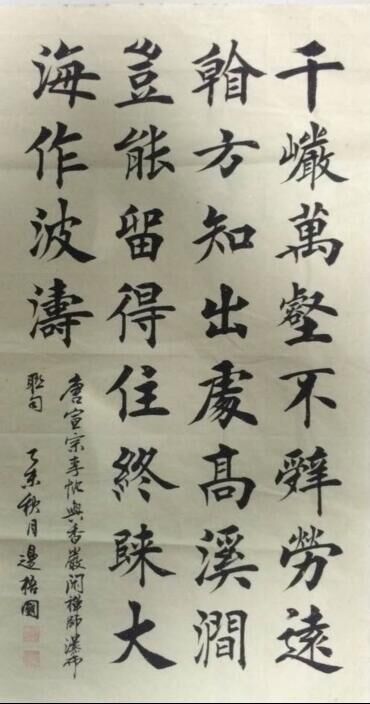 千巗萬壑不辭勞遠
看方知出處高溪澗
豈能留得住終歸大
海作波濤
唐宣宗李忱與香嚴閑禪師瀑布
聯句 乙未秋月邊